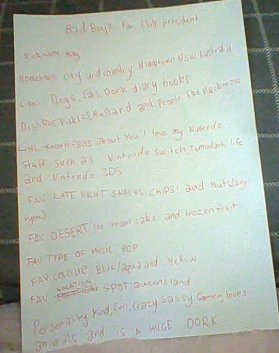 Bad Boyz Fan Club president
Nickname: Molly
Hometown city and country Blacktown NSW Australia
Like: Dogs, Cats, Dork diary books
Dislikes Pickles, Mustard and People like Mackenzie
Little known facts about you I love my Nintendo
stuff. Such as Nintendo switch, Tomodachi life
and Nintendo 3DS
FAV LATE NIGHT SNACKS CHIPS! and Nuts (any
type).
FAV DESERT Ice cream cake and frozen fruit
FAV TYPE OF MUSIC POP
FAV COLOUR Blue/aqua and Yellow
FAV VACATION SPOT Queensland
Personality, Kind, Fun, Crazy Sassy Gamer, loves
animals and is A HUGE DORK